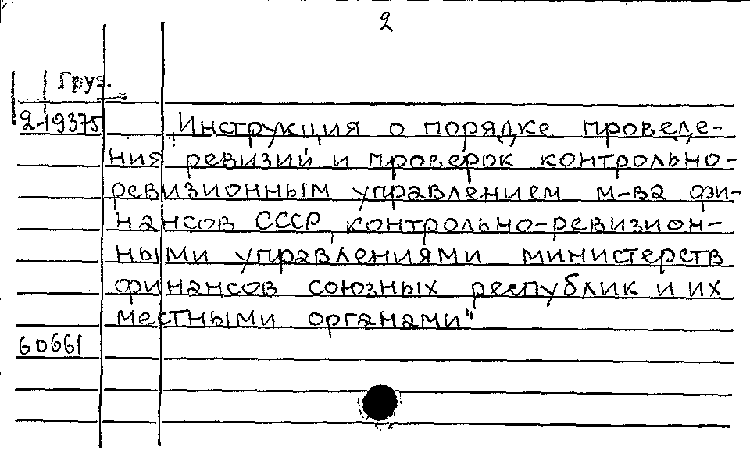 2
Груз.
2-19375
„Инструкция о порядке проведе-
ния ревизий и проверок контрольно-
ревизионным управлением м-ва фи-
нансов СССР, контрольно-ревизион-
ными управлениями министерств
финансов союзных республик и их
местными органами"
60661